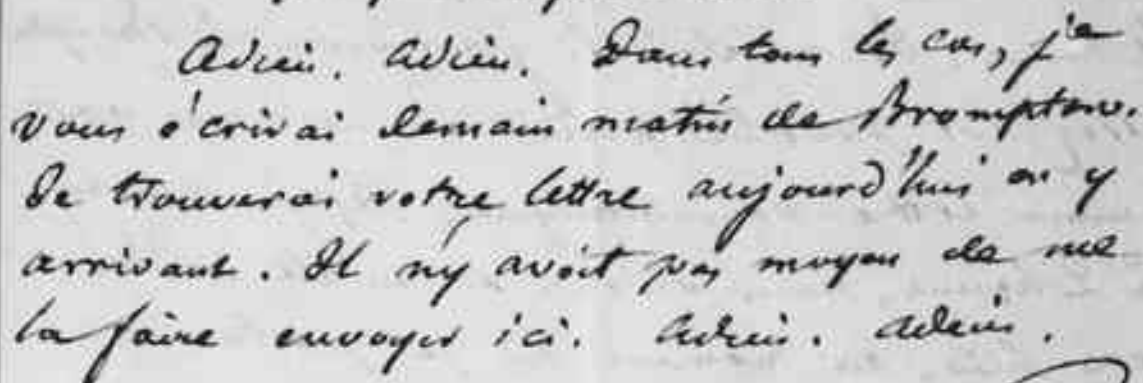 Adieu. Adieu. Dans tous les cas, je
vous écrirai demain matin de Brompton.
Je trouverai votre lettre aujourd'hui en y
arrivant. Il n'y avoit pas moyen de me
la faire envoyer ici. Adieu. Adieu.